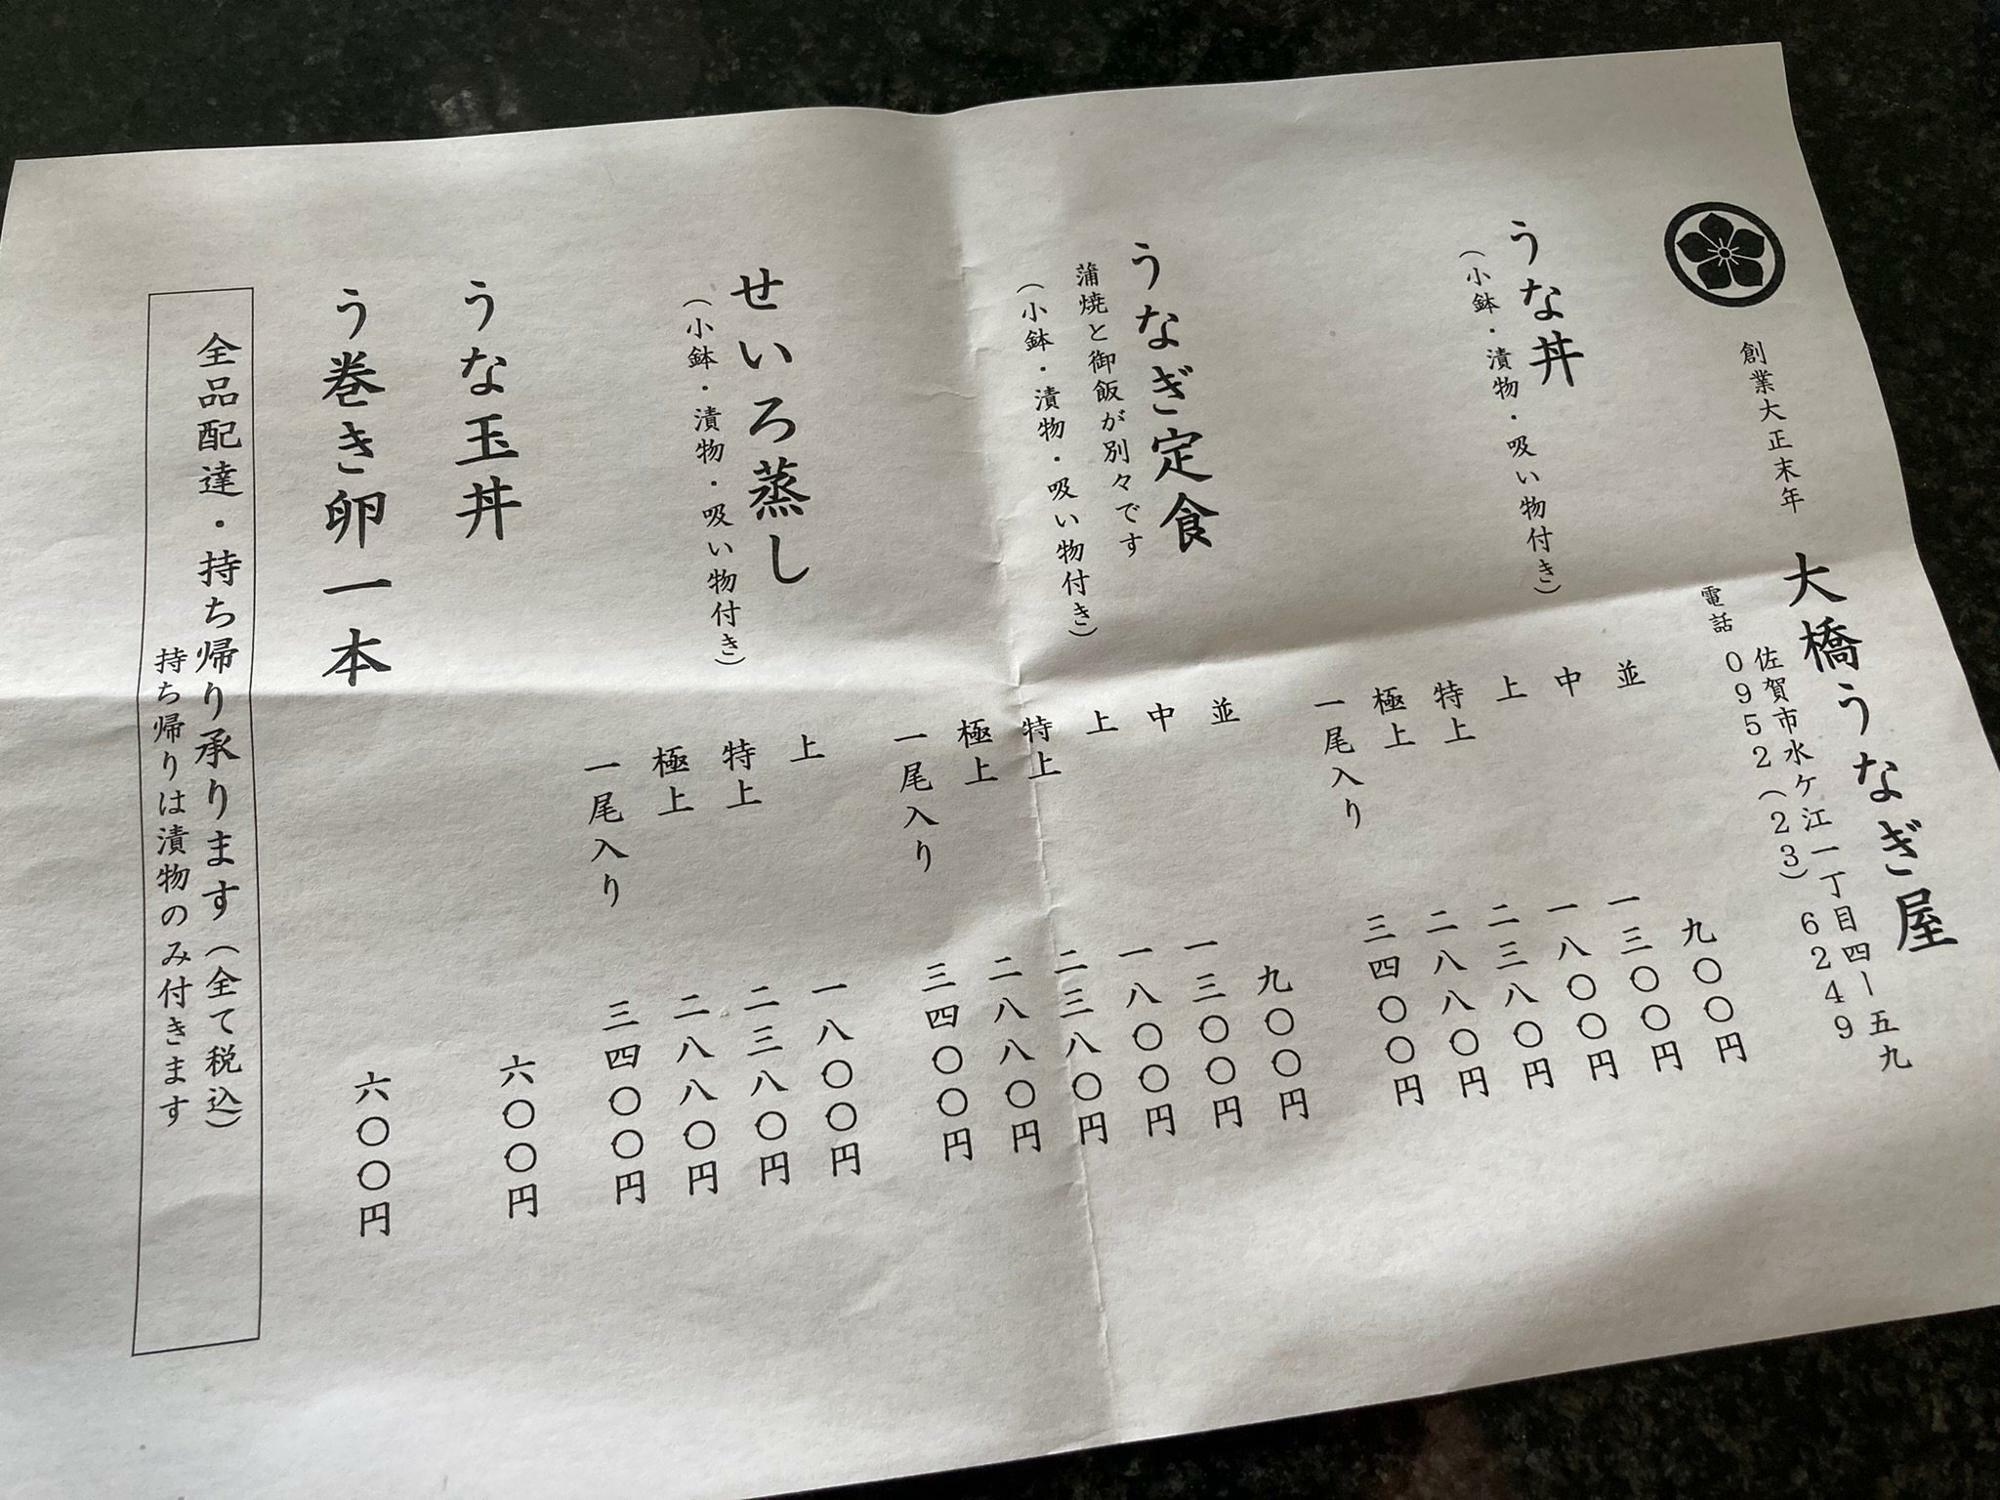 創業大正末年　大橋うなぎ屋
佐賀市水ケ江一丁目四ー五九
電話　０９５２（２３）６２４９
うな丼
（小鉢・漬物・吸い物付き）
並　九〇〇円
中　一三〇〇円
上　一八〇〇円
特上　二三八〇円
極上　二八八〇円
一尾入り　三四〇〇円
うなぎ定食
蒲焼と御飯が別々です
（小鉢・漬物・吸い物付き）
並　九〇〇円
中　一三〇〇円
上　一八〇〇円
特上　二三八〇円
極上　二八八〇円
一尾入り　三四〇〇円
せいろ蒸し
（小鉢・漬物・吸い物付き）
上　一八〇〇円
特上　二三八〇円
極上　二八八〇円
一尾入り　三四〇〇円
うな玉丼　六〇〇円
う巻き卵一本　六〇〇円
全品配達・持ち帰り承ります（全て税込）
持ち帰りは漬物のみ付きます